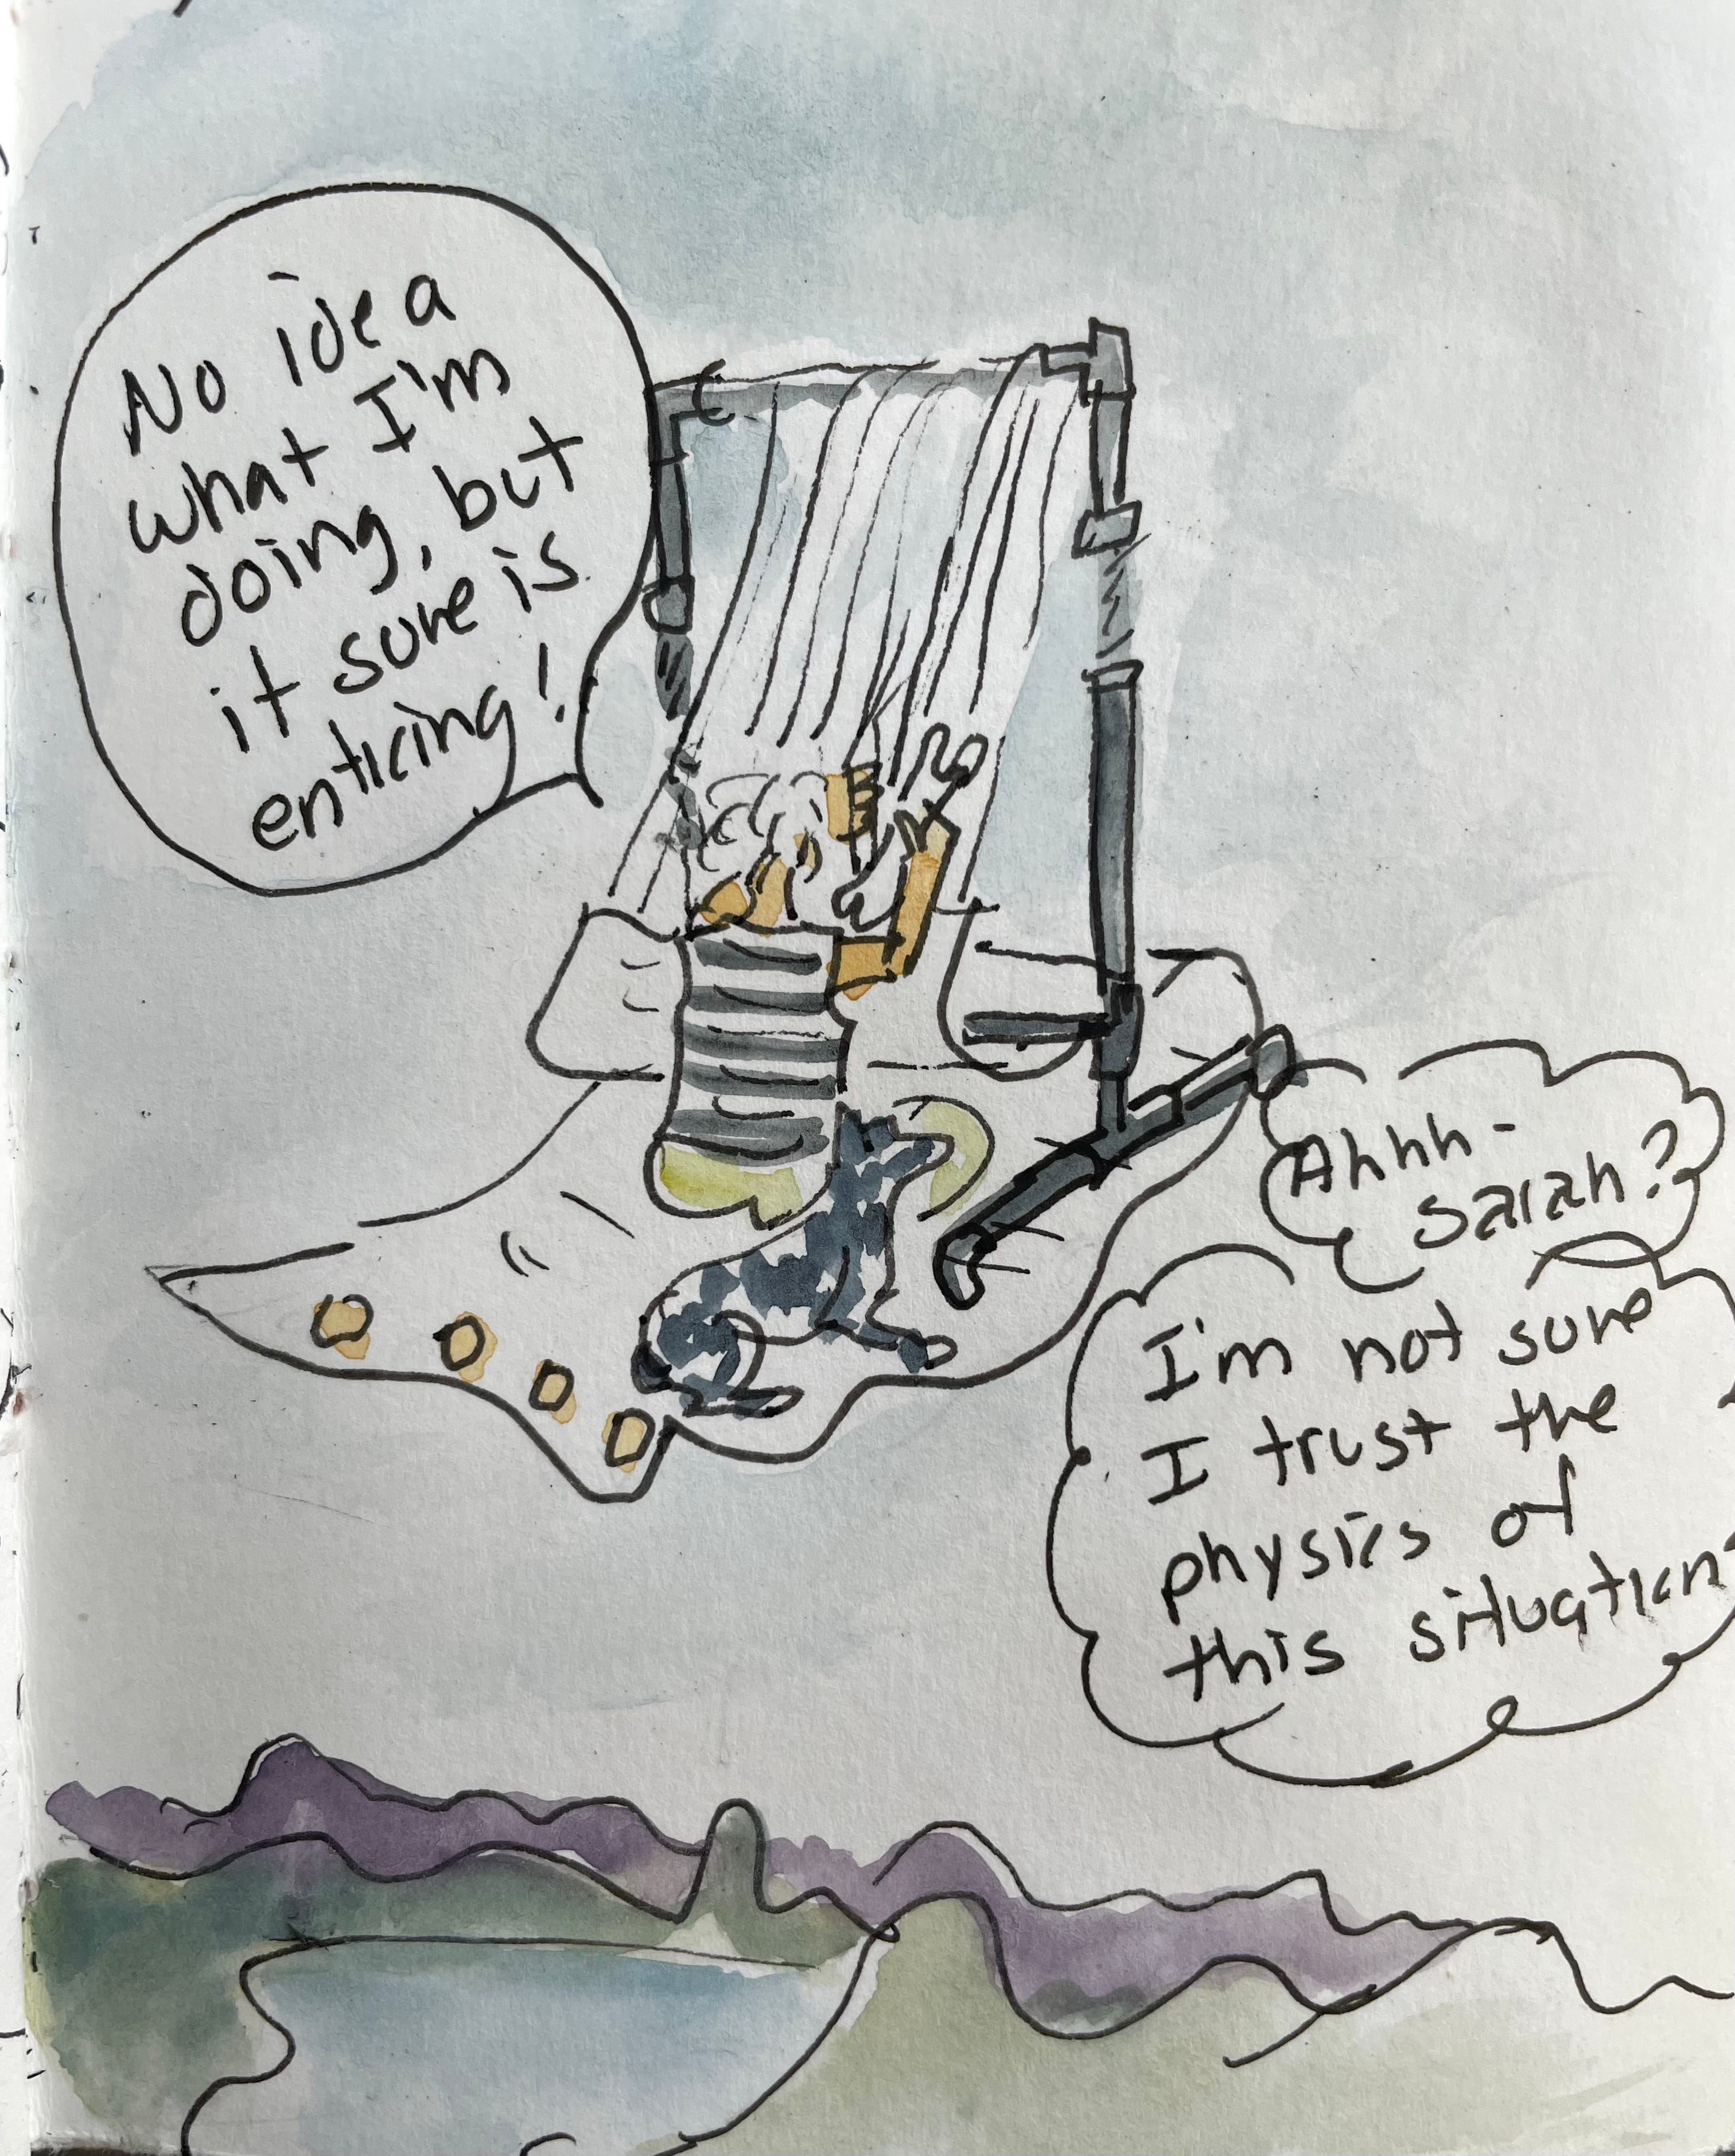 No idea
what I'm
doing, but
it sure is
enticing!
Ahhh-
sarah?
I'm not sure
I trust the
physics of
this situation